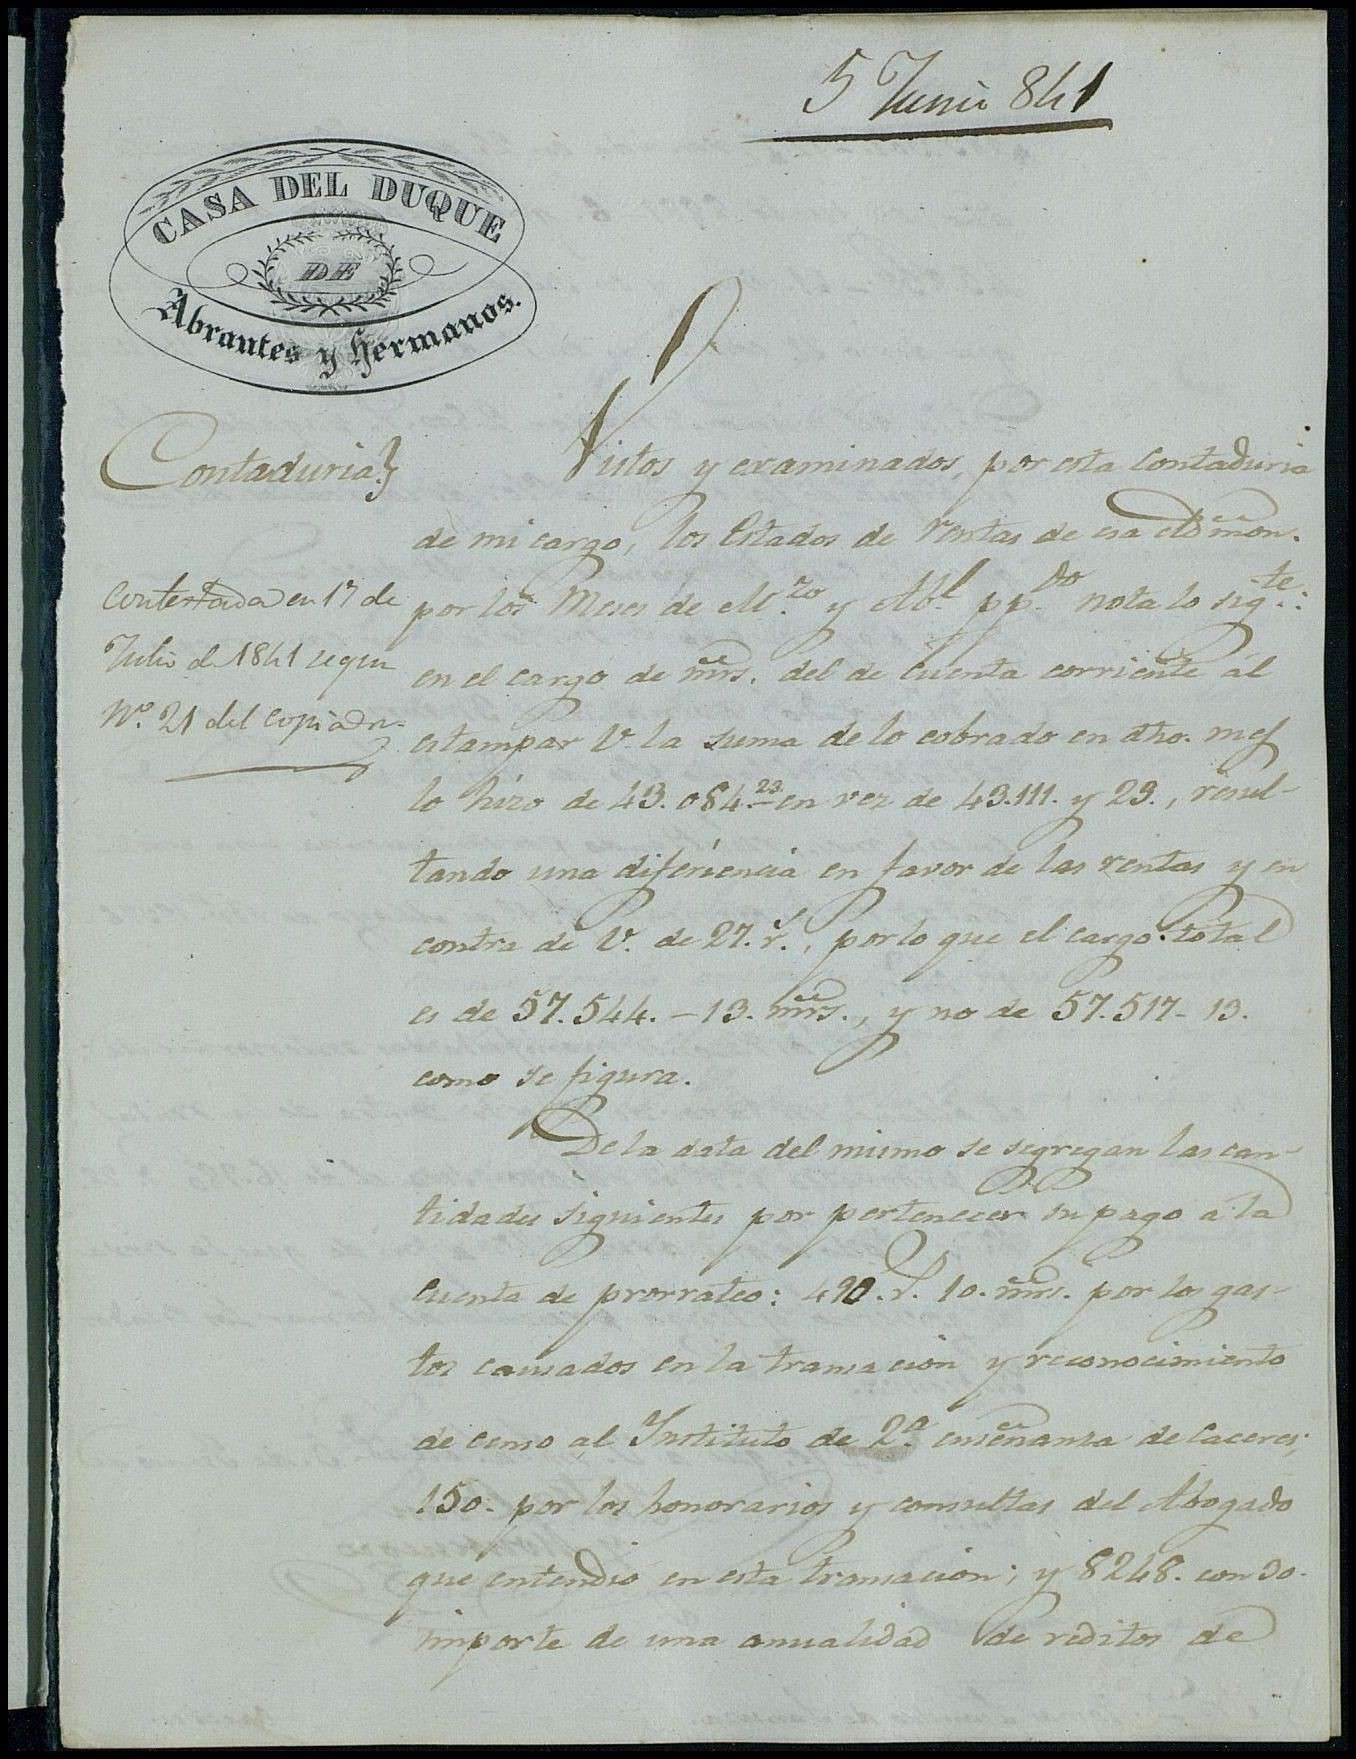 5 Junio 841
CASA DEL DUQUE
DE
Abrantes y Hermanos.
Contaduria}
Contestada en 17 de
Julio de 1841 segun
Nº. 21 del copiador.
Vistos y examinados, por esta Contaduria
de mi cargo, los Estados de Rentas de esa Admon.
por los Meses de M.zo y Ab.l pp.do nota lo sig.te:
en el cargo de mrs. del de cuenta corriente ál
estampar V. la suma de lo cobrado en dho. mes
lo hizo de 43.084.23 en vez de 43.111. y 23., resul-
tando una diferiencia en favor de las rentas y en
contra de V. de 27. r.s, por lo que el cargo total
es de 57.544. - 13. mrs., y no de 57.517 - 13.
como se figura.
De la data del mismo se segregan las can-
tidades siguientes por pertenecer su pago á la
cuenta de prorrateo: 490. r.s 10. mrs. por los gas-
tos causados en la transacion y reconocimiento
de censo al Instituto de 2.a enseñansa de Caceres;
150. por los honorarios y consultas del Abogado
que entendió en esta transacion; y 8248. con 30.
importe de una anualidad de reditos de